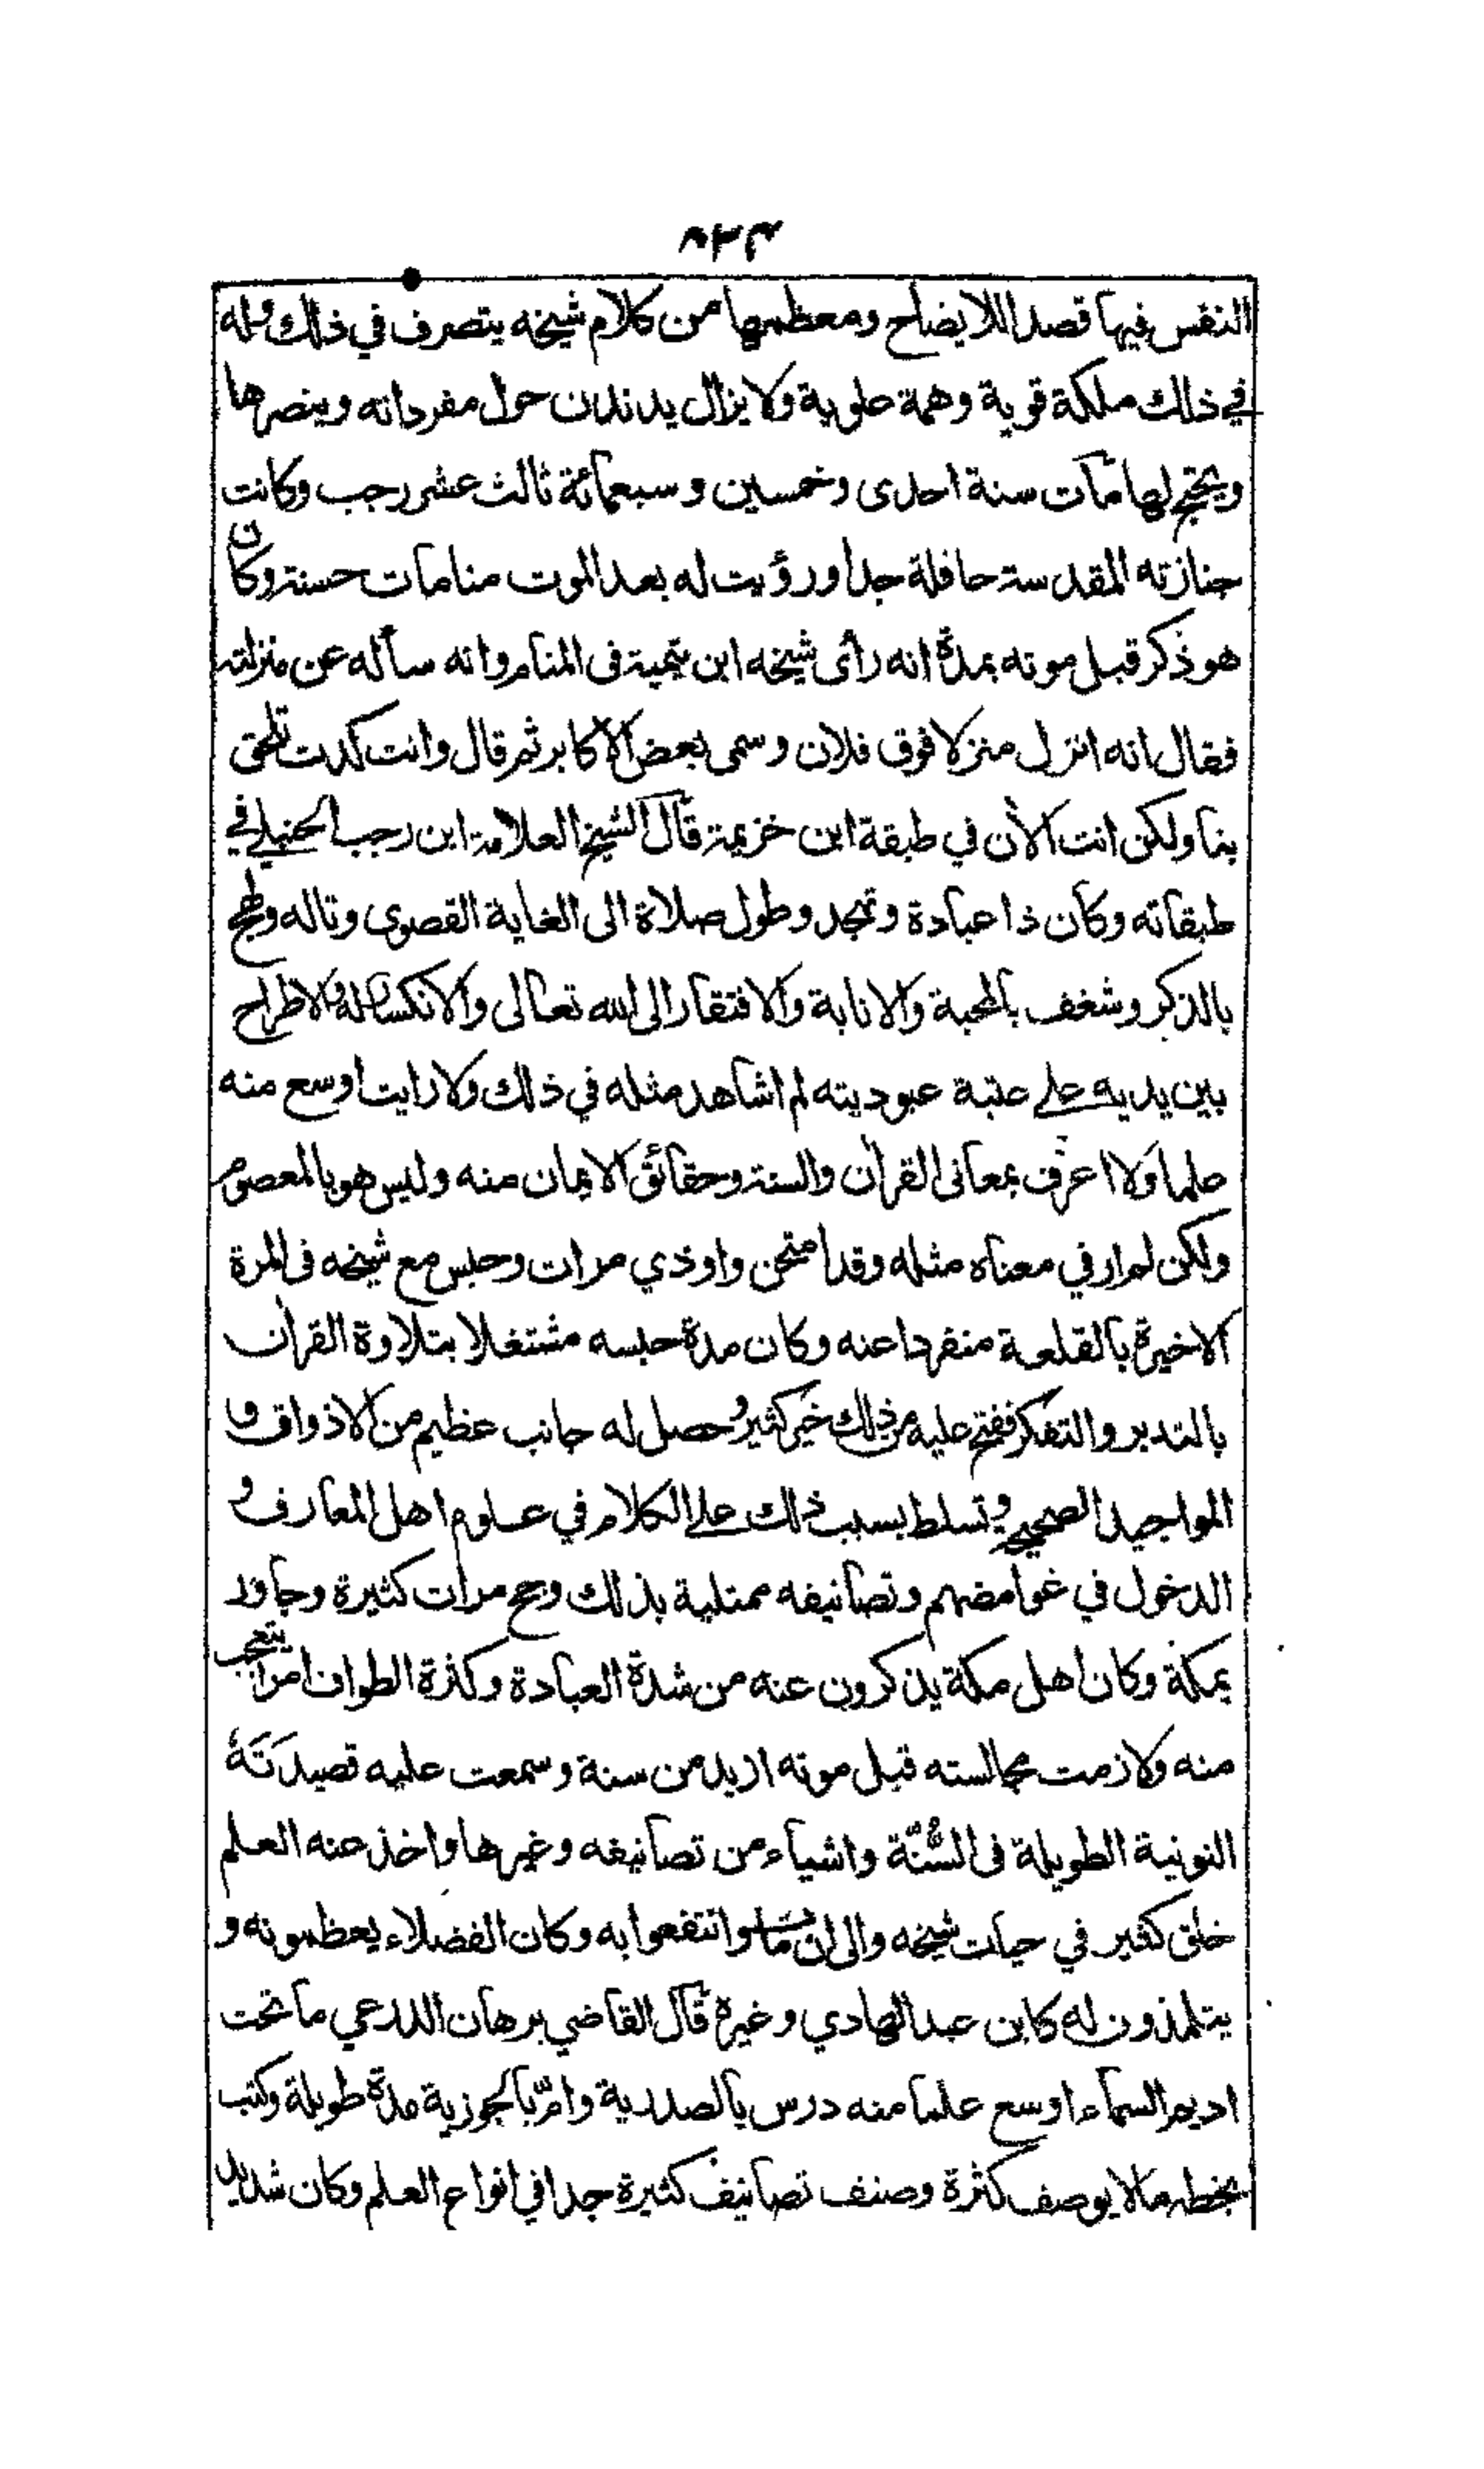 ٨٢٣
النفس فيها قصد اللايضاح ومعظمها من كلام شيخه يتصرف في ذلك وله
في ذلك ملكة قوية وهمة علوية ولا يزال يدندن حول مفرداته وينصرها
ويحتج لها مات سنة احدى وخمسين وسبعمائة ثالث عشر رجب وكانت
جنازته المقدسة حافلة جدا ورؤيت له بعد الموت منامات حسنة وكان
هو ذكر قبل موته بمدة انه رأى شيخه ابن تيمية فى المنام وانه سأله عن منزلته
فقال انه انزل منزلا فوق فلان وسمى بعض الأكابر ثم قال وانت كدت تلحق
بنا ولكن انت الأن في طبقة ابن خزيمة قال الشيخ العلامة ابن رجب الحنبلي في
طبقاته وكان ذا عبادة وتهجد وطول صلاة الى الغاية القصوى وتاله ولهج
بالذكر وشغف بالمحبة والانابة والافتقار الى الله تعالى والانكسار له والاطراح
بين يديه على عتبة عبوديته لم اشاهد مثله في ذلك ولا رايت اوسع منه
علما ولا اعرف بمعانى القرأن والسنة وحقائق الايمان منه وليس هو بالمعصوم
ولكن لم ار في معناه مثله وقد امتحن واوذي مرات وحبس مع شيخه فى المرة
الاخيرة بالقلعة منفردا عنه وكان مدة حبسه مشتغلا بتلاوة القرأن
بالتدبر والتفكر ففتح عليه من ذلك خير كثير وحصل له جانب عظيم من الاذواق و
المواجيد الصحيحة وتسلط بسبب ذلك على الكلام في علوم اهل المعارف و
الدخول في غوامضهم وتصانيفه ممتلية بذلك وحج مرات كثيرة وجاور
بمكة وكان اهل مكة يذكرون عنه من شدة العبادة وكثرة الطواف امرا يتعجب
منه ولازمت مجالسته قبل موته ازيد من سنة وسمعت عليه قصيدَتَهُ
النونية الطويلة فى السُّنّة واشياء من تصانيفه وغيرها واخذ عنه العلم
خلق كثير في حيات شيخه والى ان مات وانتفعوا به وكان الفضلاء يعظمونه و
يتلمذون له كابن عبد الهادي وغيره قال القاضي برهان الدرعي ما تحت
اديم السماء اوسع علما منه درس بالصدرية وامّ بالجوزية مدة طويلة وكتب
بخطه مالا يوصف كثرة وصنف تصانيف كثيرة جدا في انواع العلم وكان شديد